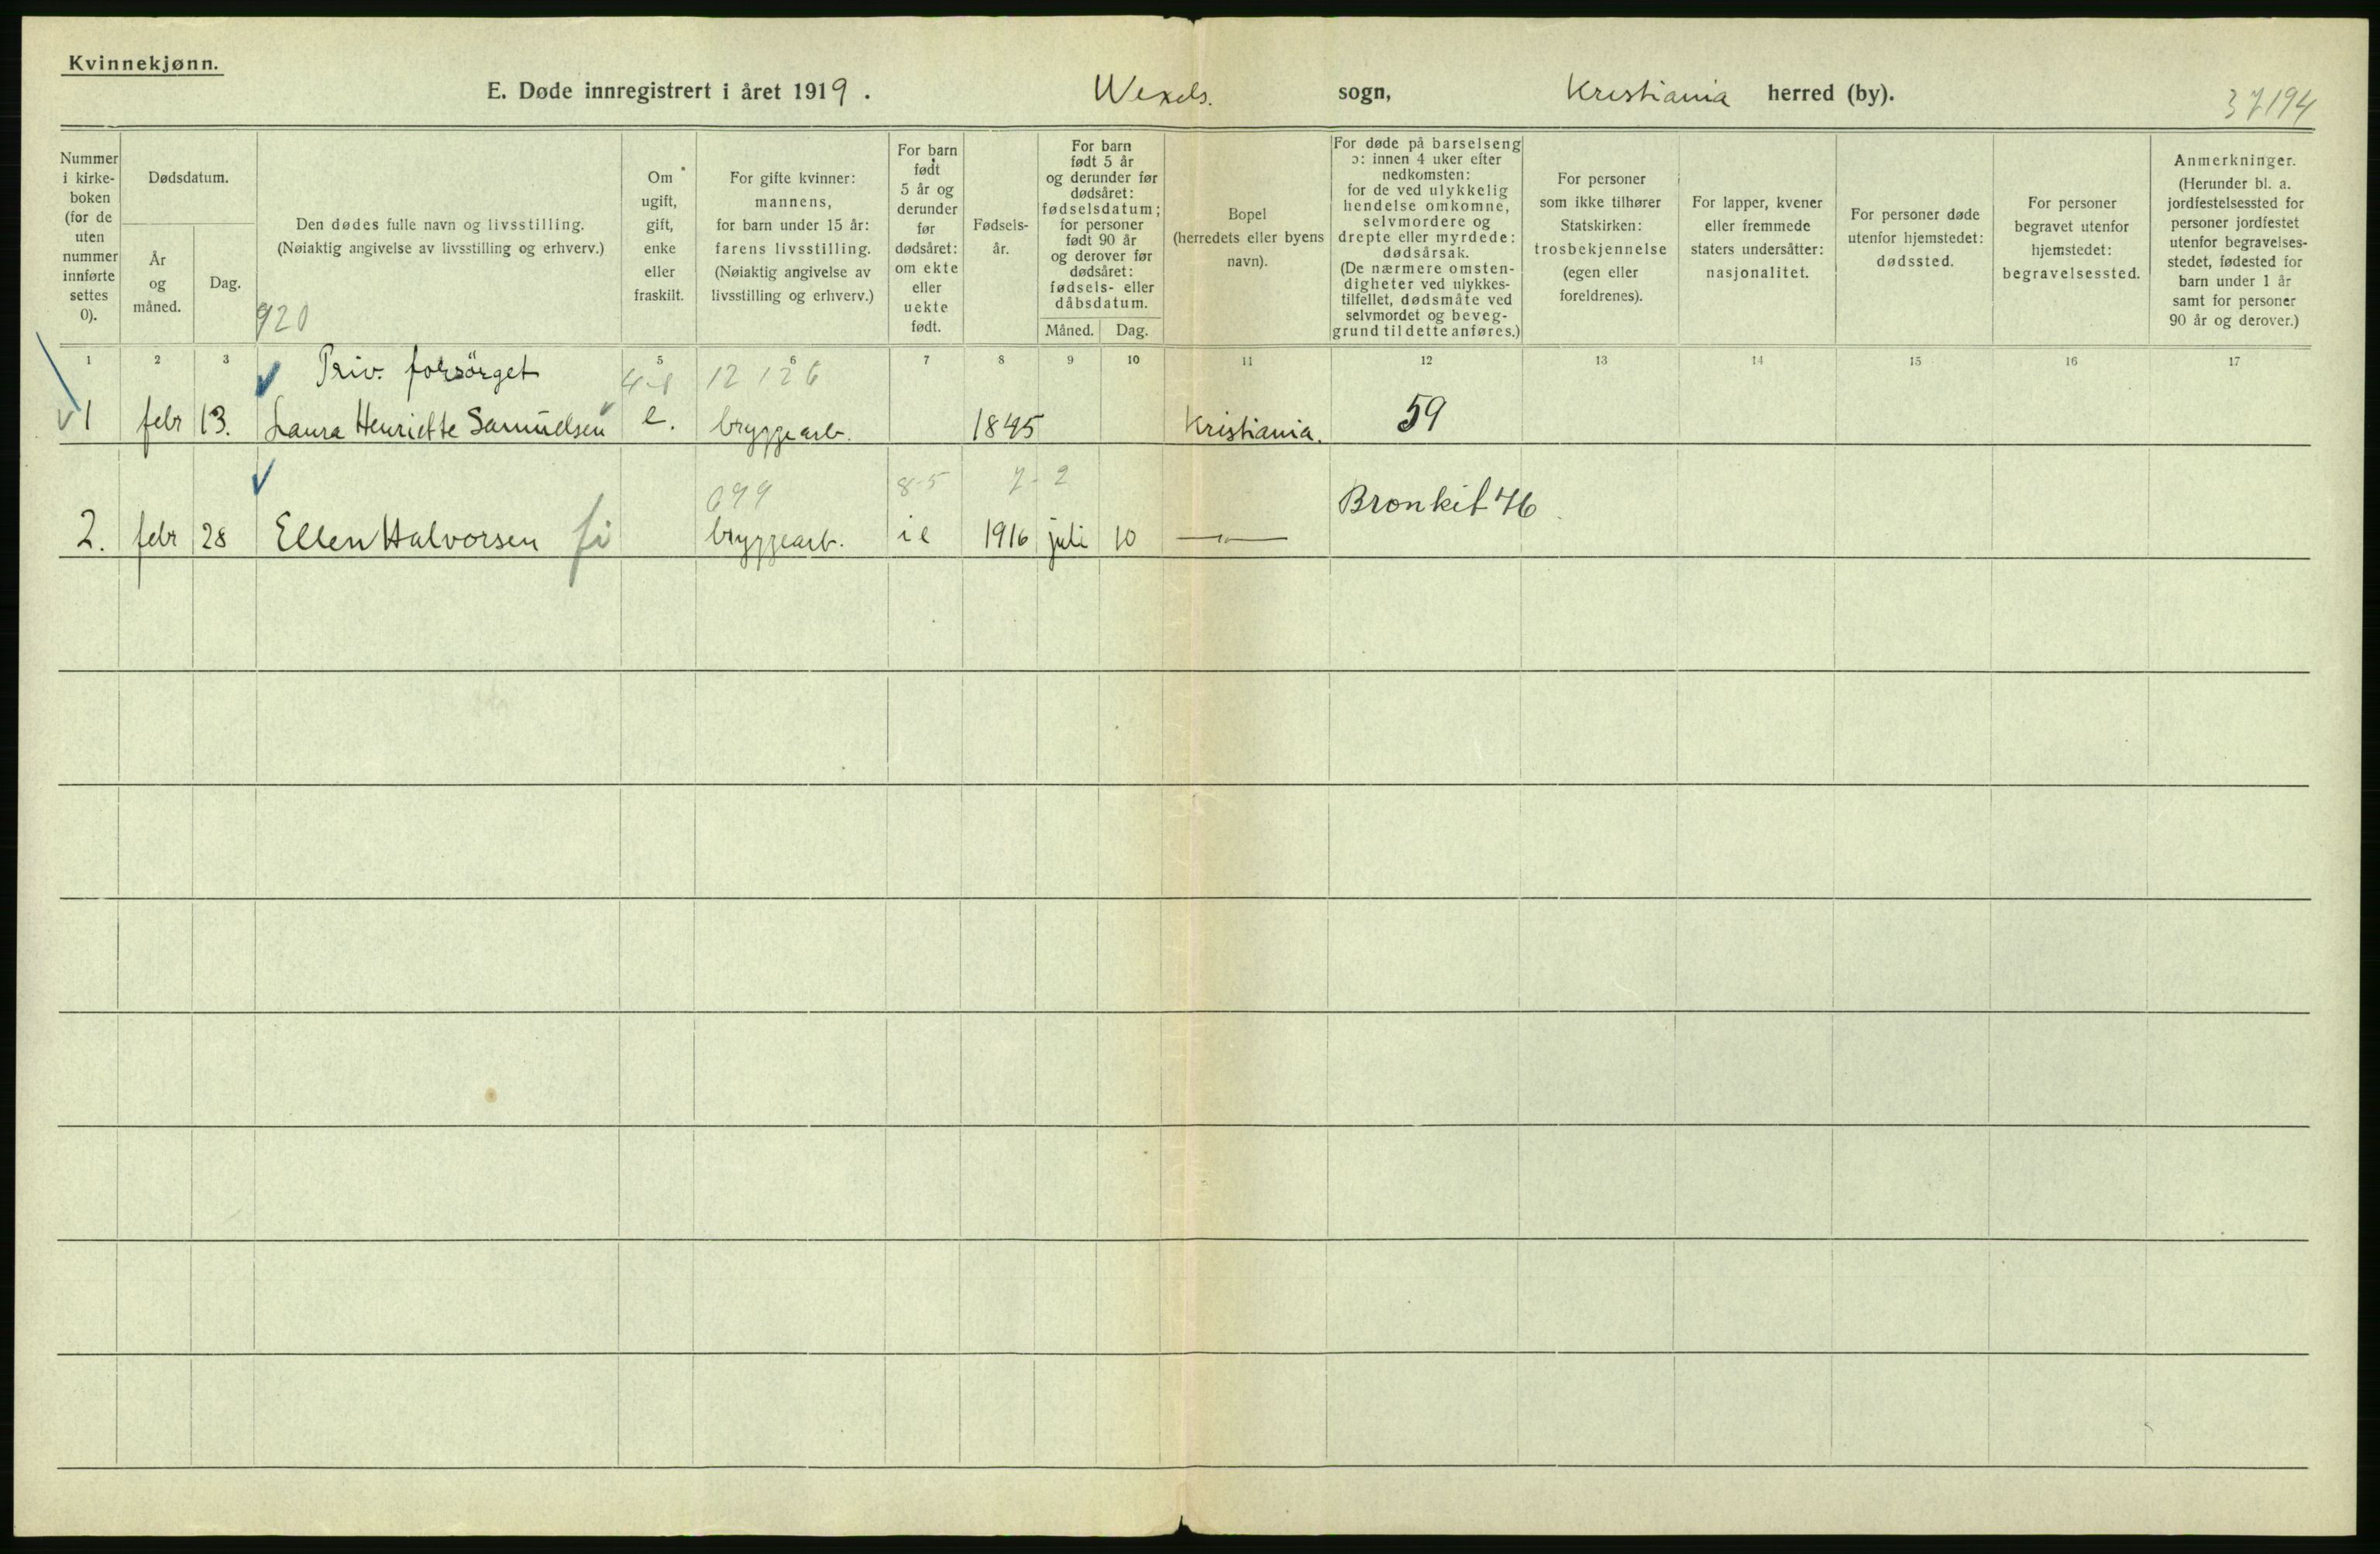 Kvinnekjønn.
E. Døde innregistrert i året 1919. Wexels. sogn, Kristiania herred (by). 37194
Nummer i kirke- boken (for de uten nummer innførte settes 0).
Dødsdatum.
År og måned.
Dag.
Den dødes fulle navn og livsstilling.
(Nøiaktig angivelse av livsstilling og erhverv.)
920
Om ugift, gift, enke eller fraskilt.
For gifte kvinner: mannens, for barn under 15 år: farens livsstilling. (Nøiaktig angivelse av livsstilling og erhverv.)
For barn født 5 år og derunder før dødsåret: om ekte eller uekte født.
Fødsels- år.
For barn født 5 år og derunder før dødsåret: fødselsdatum; for personer født 90 år og derover før dødsåret: fødsels- eller dåbsdatum.
Måned. Dag.
Bopel (herredets eller byens navn).
For døde på barselseng ɔ: innen 4 uker efter nedkomsten: for de ved ulykkelig hendelse omkomne, selvmordere og drepte eller myrdede: dødsårsak. (De nærmere omsten- digheter ved ulykkes- tilfellet, dødsmåte ved selvmordet og beveg- grund til dette anføres.)
For personer som ikke tilhører Statskirken: trosbekjennelse (egen eller foreldrenes).
For lapper, kvener eller fremmede staters undersåtter: nasjonalitet.
For personer døde utenfor hjemstedet: dødssted.
For personer begravet utenfor hjemstedet: begravelsessted.
Anmerkninger. (Herunder bl. a. jordfestelsessted for personer jordfestet utenfor begravelses- stedet, fødested for barn under 1 år samt for personer 90 år og derover.)
1 2 3 5 6 7 8 9 10 11 12 13 14 15 16 17
Priv. forsörget 12 126
1 febr 13. Laura Henriette Samuelsen e. bryggearb. 1845 Kristiania. 59
099 8-5 7-2
2. febr 28 Ellen Halvorsen fi bryggearb. ie 1916 juli 10 —"— Bronkit 46